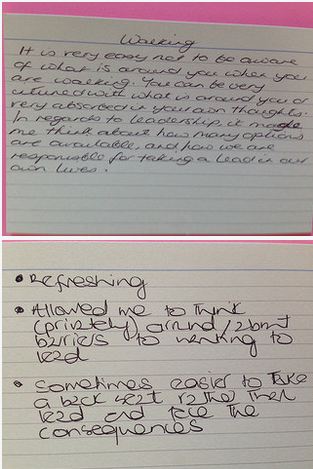 Walking
It is very easy not to be aware
of what is around you when you
are walking. You can be very
intuned with what is around you or
very absorbed in your own thoughts.
In regards to leadership, it made
me think about how many options
are available, and how we are
responsible for taking a lead in our
own lives.
• Refreshing
• Allowed me to think
(privately) around/about
barriers to wanting to
lead
• Sometimes easier to take
a back seat rather than
lead and face the
consequences